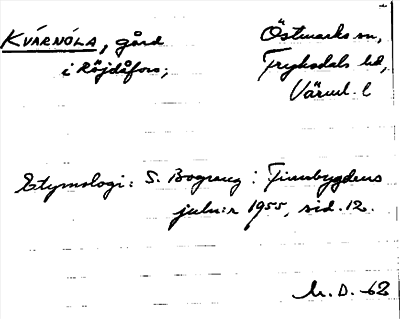 KVÁRNÓLA, gård
i Röjdåfors;
Östmarks sn,
Fryksdals hd,
Värml. l
Etymologi: S. Bograng i Finnbygdens
julnr 1955, sid. 12.
M. D. -62